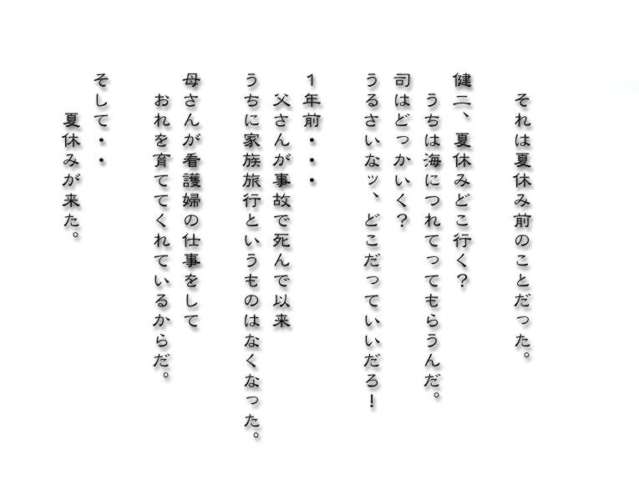 それは夏休み前のことだった。
健二、夏休みどこ行く?
うちは海につれてってもらうんだ。
司はどっかいく?
うるさいなッ、どこだっていいだろ!
1年前・・・
父さんが事故で死んで以来
うちに家族旅行というものはなくなった。
母さんが看護婦の仕事をして
おれを育ててくれているからだ。
そして・・
夏休みが来た。